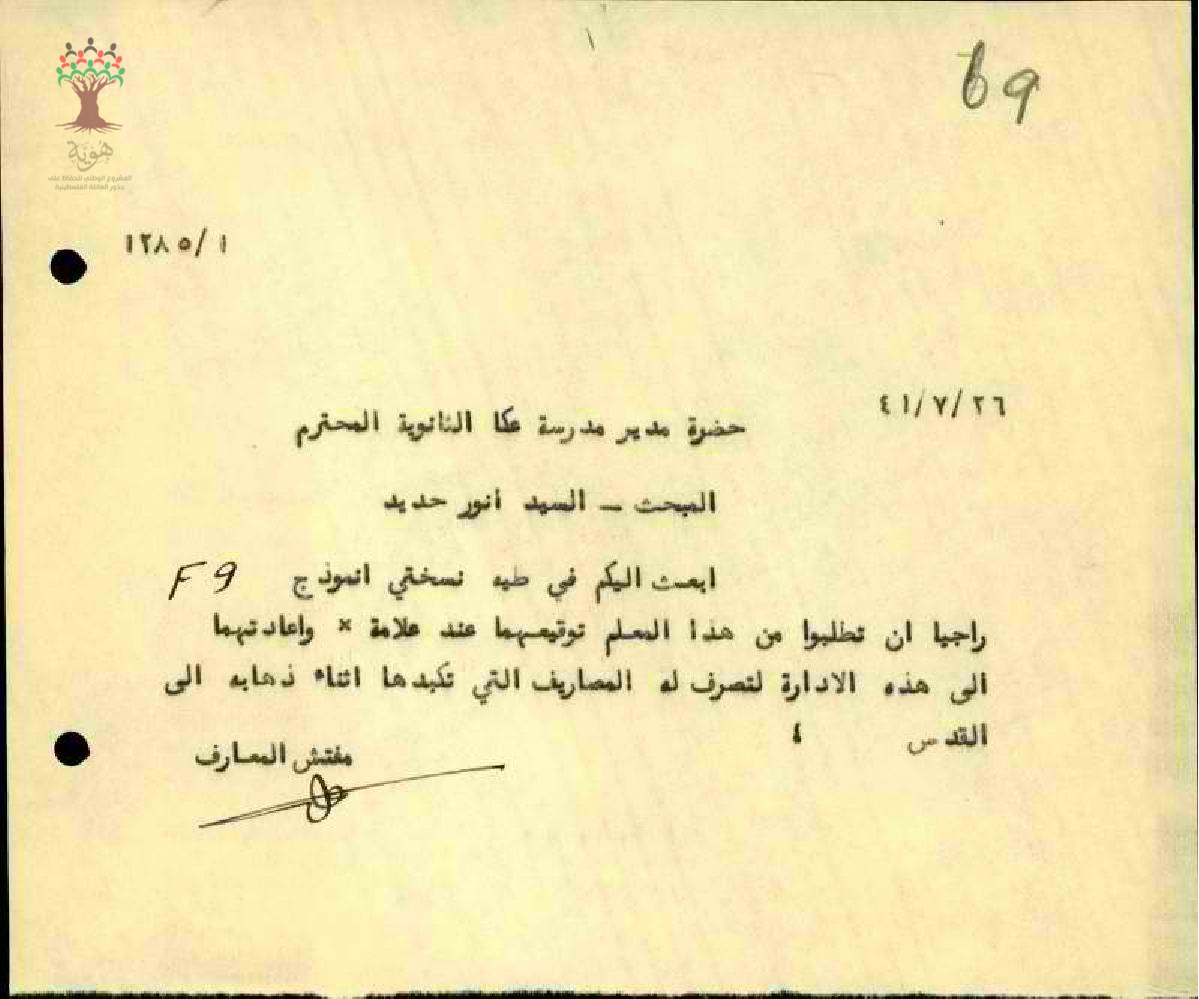 69
هوية
المشروع الوطني للحفاظ على
جذور العائلة الفلسطينية
١٢٨٥/ ١
٤١/٧/٢٦
حضرة مدير مدرسة عكا الثانوية المحترم
المبحث ــ السيد أنور حديد
ابعث اليكم في طيه نسختي انموذج F9
راجيا ان تطلبوا من هذا المعلم توقيعهما عند علامة × واعادتهما
الى هذه الادارة لتصرف له المصاريف التي تكبدها اثناء ذهابه الى
القدس ٤
مفتش المعارف